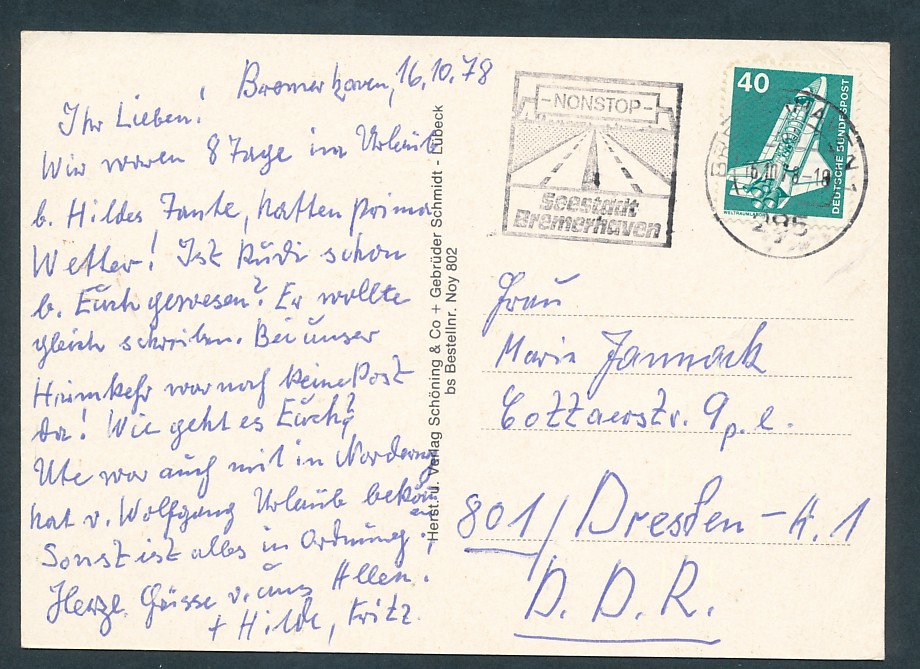 Bremerhaven, 16.10.78
Ihr Lieben!
Wir waren 8 Tage im Urlaub
b. Hildes Tante, hatten prima
Wetter! Ist Rudi schon
b. Euch gewesen? Er wollte
gleich schreiben. Bei unser
Heimkehr war noch keine Post
da! Wie geht es Euch?
Ute war auch mit in Norderney
hat v. Wolfgang Urlaub bekom
Sonst ist alles in Ordnung.
Herzl. Grüsse v. uns Allen.
+ Hilde, Fritz.
Herst. u. Verlag Schöning & Co + Gebrüder Schmidt - Lübeck
bs Bestellnr. Noy 802
-NONSTOP-
Seestadt
Bremerhaven
40
DEUTSCHE BUNDESPOST
WELTRAUMLABOR
285
Frau
Marie Jannack
Cottaerstr. 9 p. l.
801/ Dresden - A. 1
D. D. R.